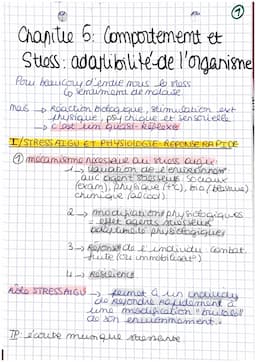 ①
Chapitre 5: Comportement et
Stress: adaptabilité de l'organisme
Pour beaucoup d'entre nous le stess
↳ sentiment de malaise
Mais → Réaction biologique, stimulation ext
physique, psychique et sensorielle
→ c'est un quasi-réflexe
I/ STRESS AIGU ET PHYSIOLOGIE REPONSE RAPIDE
① mécanisme nécessaire au stress aigu:
1 → Variation de l'environnement
aux agent stresseur: sociaux
(exam), physique (t°c), bio (blessure)
chimique (alcool).
2 → modifications physiologiques
effet agents stresseurs
physiologiques
3 → réponse de l'individu combat
fuite (ou immobilisat°)
4 → Résilience
Rôle STRESS AIGU → permet à un individu
de répondre rapidement à
une modification
de son environnement.
TP: écoute musique